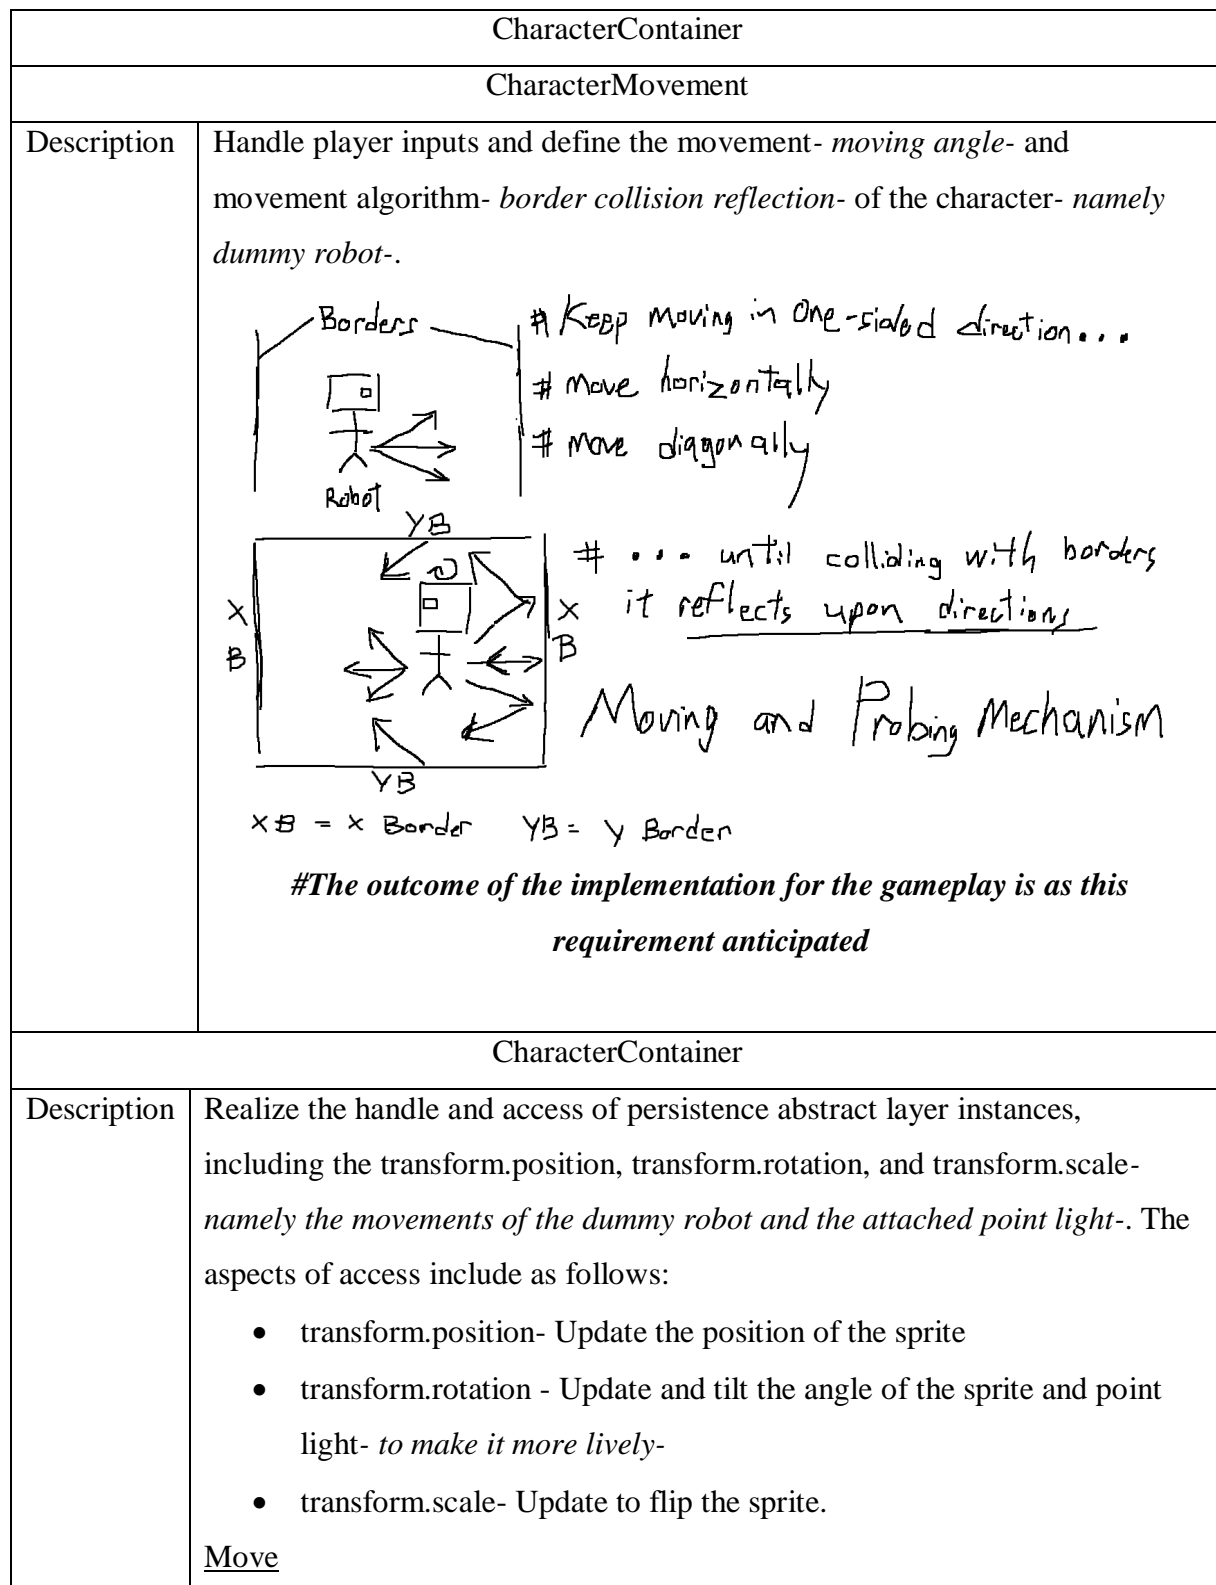 CharacterContainer
CharacterMovement
Description
Handle player inputs and define the movement- moving angle- and
movement algorithm- border collision reflection- of the character- namely
dummy robot-.
Borders
# Keep moving in One-sided direction...
# move horizontally
# move diagonally
Robot
YB
# ... until colliding with borders
it reflects upon directions
X
B
X
B
Moving and Probing Mechanism
YB
XB = X Border YB = Y Border
#The outcome of the implementation for the gameplay is as this
requirement anticipated
CharacterContainer
Description
Realize the handle and access of persistence abstract layer instances,
including the transform.position, transform.rotation, and transform.scale-
namely the movements of the dummy robot and the attached point light-. The
aspects of access include as follows:
• transform.position- Update the position of the sprite
• transform.rotation - Update and tilt the angle of the sprite and point
light- to make it more lively-
• transform.scale- Update to flip the sprite.
Move